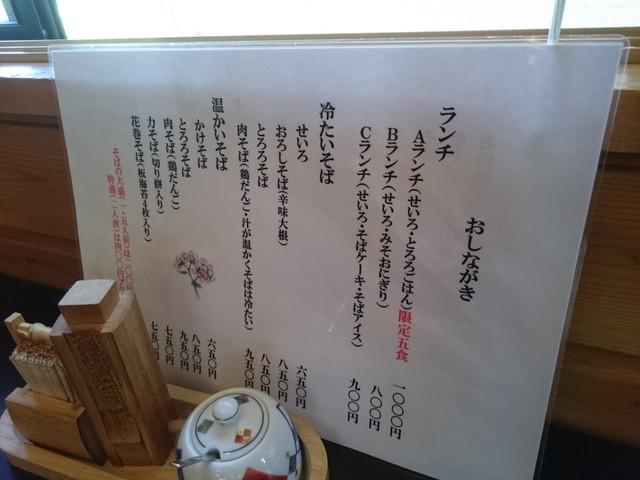 おしながき
ランチ
Aランチ(せいろ・とろろごはん)限定五食 一〇〇〇円
Bランチ(せいろ・みそおにぎり) 八〇〇円
Cランチ(せいろ・そばケーキ・そばアイス) 九〇〇円
冷たいそば
せいろ 六五〇円
おろしそば(辛味大根) 八五〇円
とろろそば 八五〇円
肉そば(鶏だんご・汁が温かくそばは冷たい) 九五〇円
温かいそば
かけそば 六五〇円
とろろそば 八五〇円
肉そば(鶏だんご) 九五〇円
力そば(切り餅入り) 七五〇円
花巻そば(板海苔4枚入り) 七五〇円
そばの大盛(一・五人前)は二〇〇円
特盛(二人前)は四〇〇円